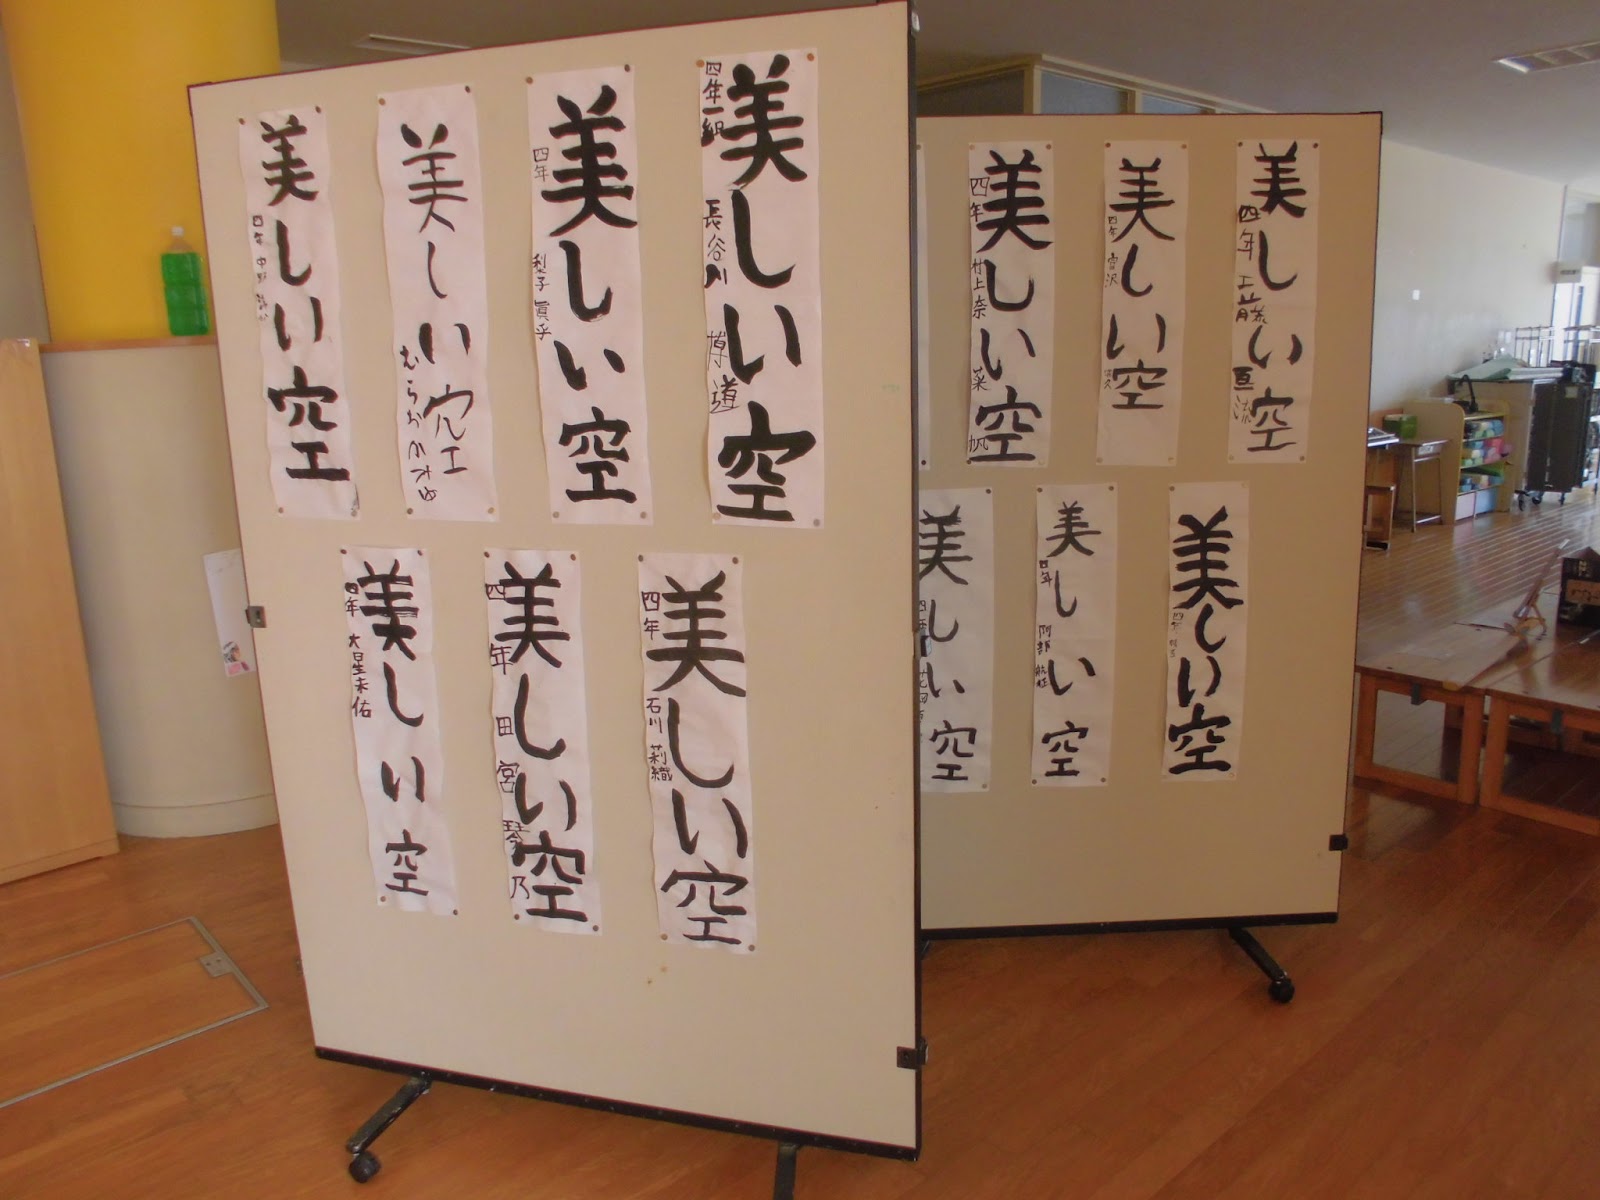 美しい空
四年一組 長谷川 博道
美しい空
四年 梨子 眞乎
美しい空
美しい空
四年 中野
美しい空
四年 石川 莉織
美しい空
四年 田宮 琴乃
美しい空
四年 大星未佑
美しい空
四年 工藤 亘流
美しい空
四年 宮沢
美しい空
四年 村上奈菜帆
美しい空
四年
美しい空
四年 阿部
美しい空